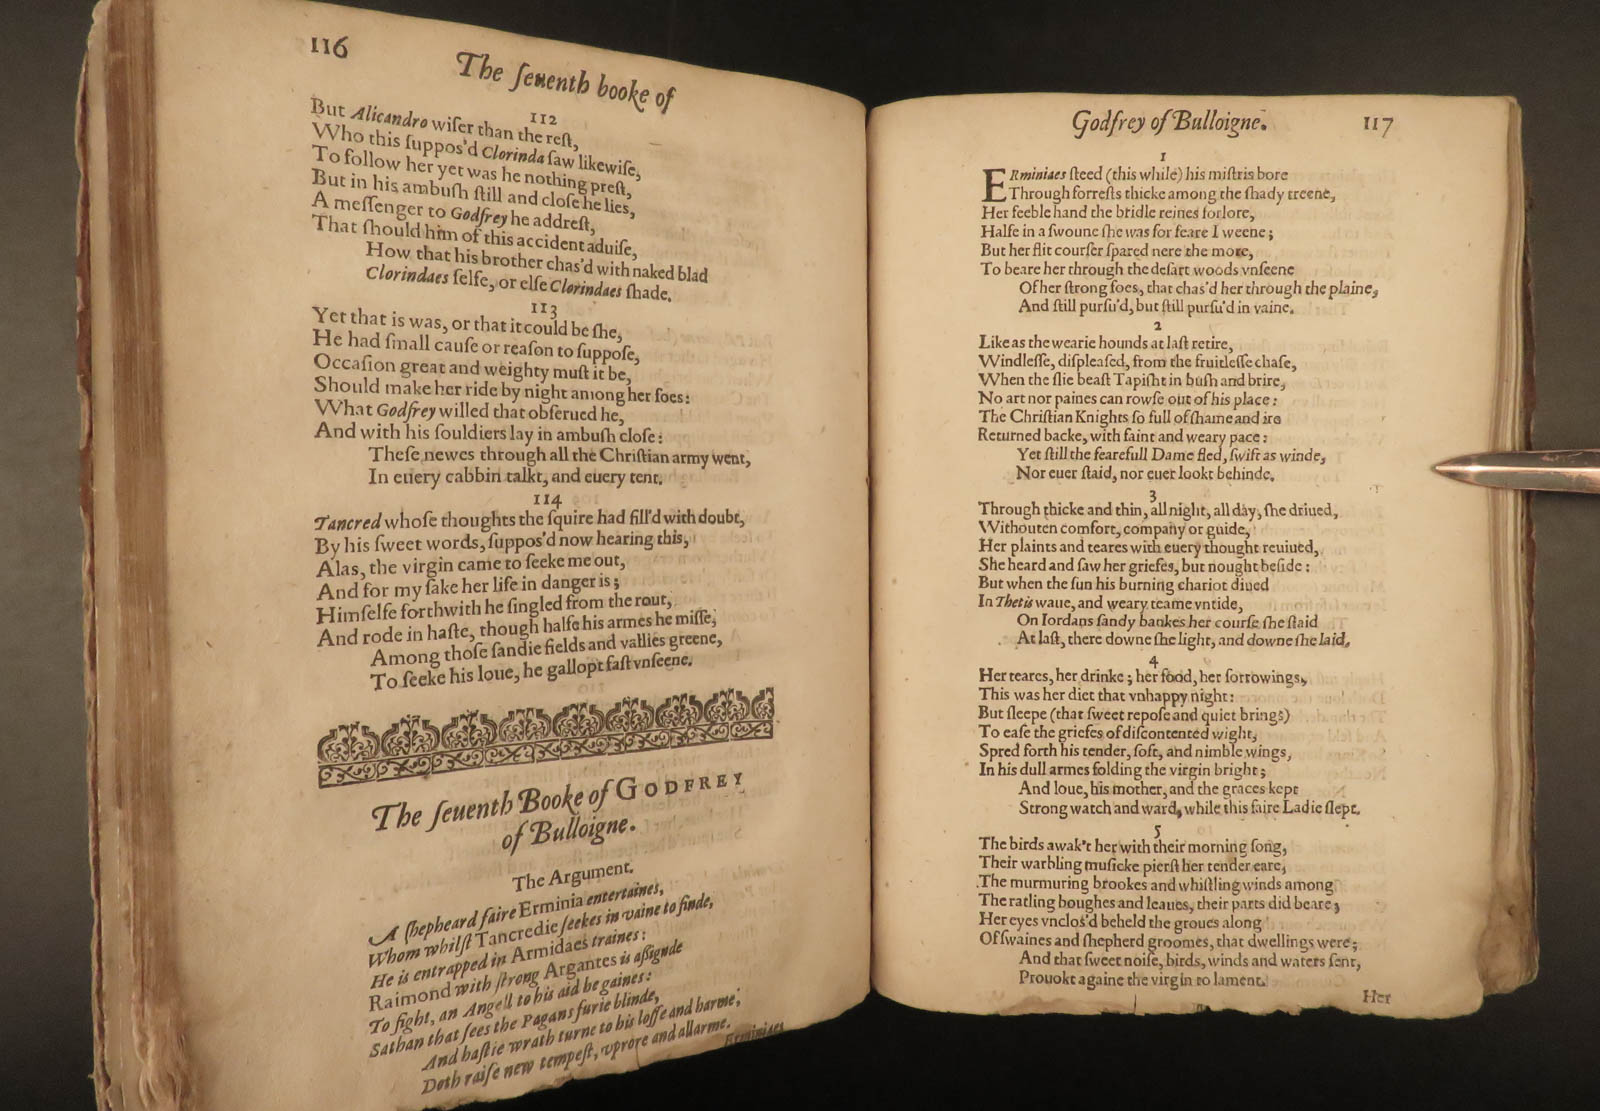 116
The ſeuenth booke of
112
But Alicandro wiſer than the reſt,
Who this ſuppos'd Clorinda ſaw likewiſe,
To follow her yet was he nothing preſt,
But in his ambuſh ſtill and cloſe he lies,
A meſſenger to Godfrey he addreſt,
That ſhould him of this accident aduiſe,
How that his brother chas'd with naked blad
Clorindaes ſelfe, or elſe Clorindaes ſhade.
113
Yet that is was, or that it could be ſhe,
He had ſmall cauſe or reaſon to ſuppoſe,
Occaſion great and weighty muſt it be,
Should make her ride by night among her foes:
What Godfrey willed that obſerued he,
And with his ſouldiers lay in ambuſh cloſe:
Theſe newes through all the Chriſtian army went,
In euery cabbin talkt, and euery tent.
114
Tancred whoſe thoughts the ſquire had fill'd with doubt,
By his ſweet words, ſuppos'd now hearing this,
Alas, the virgin came to ſeeke me out,
And for my ſake her life in danger is;
Himſelfe forthwith he ſingled from the rout,
And rode in haſte, though halfe his armes he miſſe,
Among thoſe ſandie fields and vallies greene,
To ſeeke his loue, he gallopt faſt vnſeene.
The ſeuenth Booke of GODFREY
of Bulloigne.
The Argument.
A ſhepheard faire Erminia entertaines,
Whom whilſt Tancredie ſeekes in vaine to finde,
He is entrapped in Armidaes traines:
Raimond with ſtrong Argantes is aſſignde
To fight, an Angell to his aid he gaines:
Sathan that ſees the Pagans furie blinde,
And haſtie wrath turne to his loſſe and harme,
Doth raiſe new tempeſt, vprore and allarme.
Erminiaes
Godfrey of Bulloigne.
117
1
ERminiaes ſteed (this while) his miſtris bore
Through forreſts thicke among the ſhady treene,
Her feeble hand the bridle reines forlore,
Halfe in a ſwoune ſhe was for feare I weene;
But her flit courſer ſpared nere the more,
To beare her through the deſart woods vnſeene
Of her ſtrong foes, that chas'd her through the plaine,
And ſtill purſu'd, but ſtill purſu'd in vaine.
2
Like as the wearie hounds at laſt retire,
Windleſſe, diſpleaſed, from the fruitleſſe chaſe,
When the ſlie beaſt Tapiſht in buſh and brire,
No art nor paines can rowſe out of his place:
The Chriſtian Knights ſo full of ſhame and ire
Returned backe, with faint and weary pace:
Yet ſtill the fearefull Dame fled, ſwift as winde,
Nor euer ſtaid, nor euer lookt behinde.
3
Through thicke and thin, all night, all day, ſhe driued,
Withouten comfort, company or guide,
Her plaints and teares with euery thought reuiued,
She heard and ſaw her griefes, but nought beſide:
But when the ſun his burning chariot diued
In Thetis waue, and weary teame vntide,
On Iordans ſandy bankes her courſe ſhe ſtaid
At laſt, there downe ſhe light, and downe ſhe laid.
4
Her teares, her drinke; her food, her ſorrowings,
This was her diet that vnhappy night:
But ſleepe (that ſweet repoſe and quiet brings)
To eaſe the griefes of diſcontented wight,
Spred forth his tender, ſoft, and nimble wings,
In his dull armes folding the virgin bright;
And loue, his mother, and the graces kept
Strong watch and ward, while this faire Ladie ſlept.
5
The birds awak't her with their morning ſong,
Their warbling muſicke pierſt her tender eare,
The murmuring brookes and whiſtling winds among
The ratling boughes and leaues, their parts did beare;
Her eyes vnclos'd beheld the groues along
Of ſwaines and ſhepherd groomes, that dwellings were;
And that ſweet noiſe, birds, winds and waters ſent,
Prouokt againe the virgin to lament.
Her